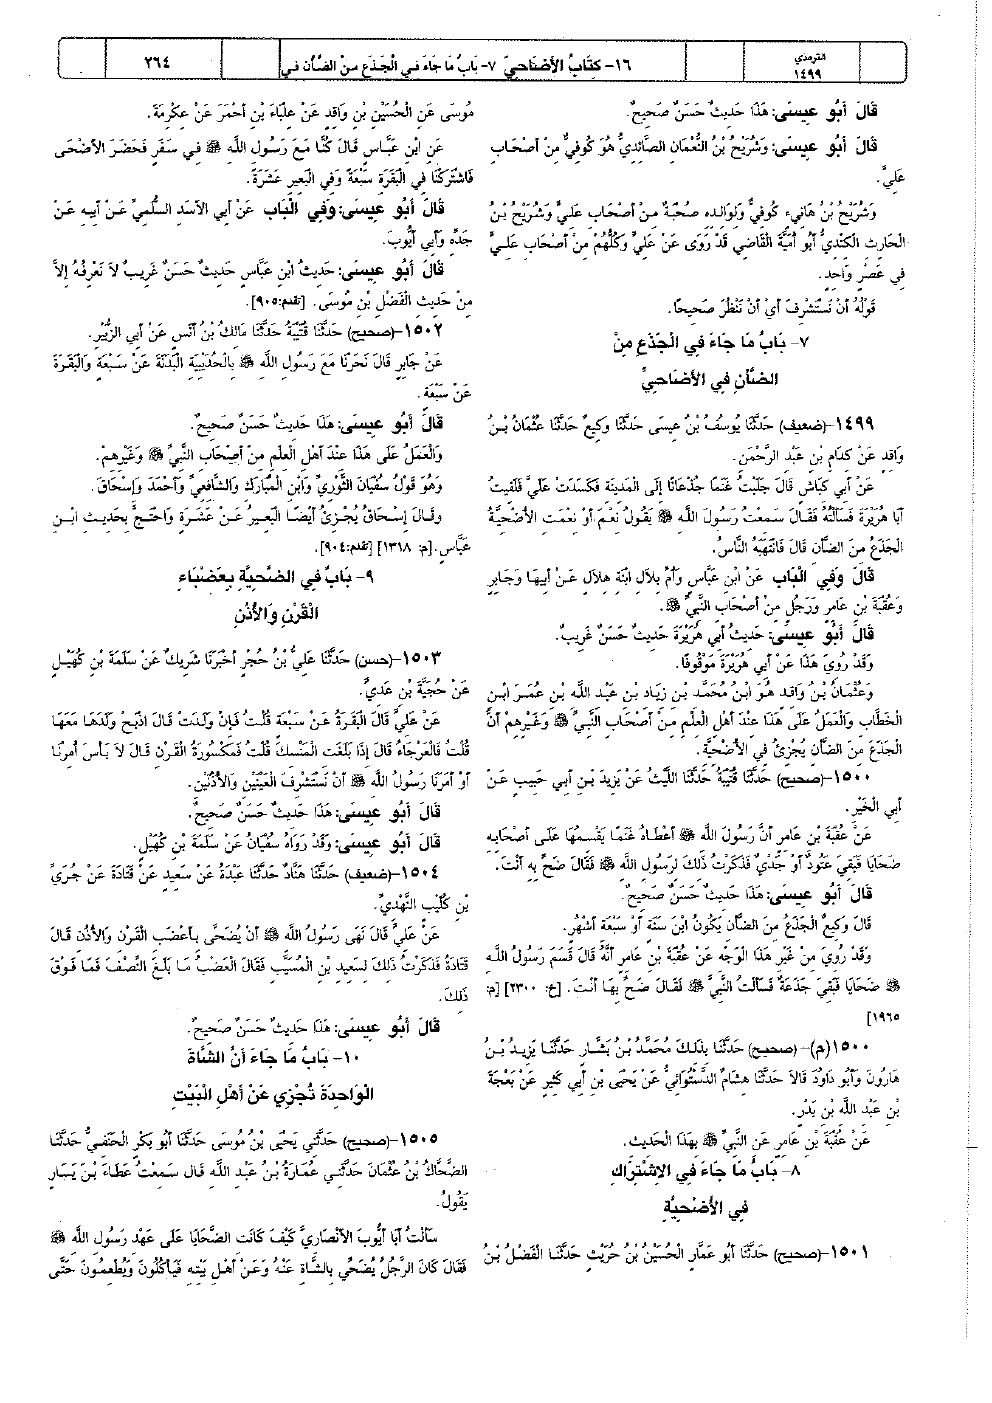 الترمذي
١٤٩٩
١٦- كتَابُ الأَضَاحِيّ ٧- بَابُ مَا جَاءَ فِي الْجَذَعِ مِنْ الضَّأْن في
٢٦٤
قَالَ أَبُو عِيسَى: هَذَا حَدِيثٌ حَسَنٌ صَحِيحٌ.
قَالَ أَبُو عِيسَى: وَشُرَيْحُ بْنُ النُّعْمَانِ الصَّائِدِيُّ هُوَ كُوفِيٌّ مِنْ أَصْحَابِ
عَلِيٍّ.
وَشُرَيْحُ بْنُ هَانِيءٍ كُوفِيٌّ وَلِوَالِدِهِ صُحْبَةٌ مِنْ أَصْحَابِ عَلِيٍّ وَشُرَيْحُ بْنُ
الْحَارِثِ الْكِنْدِيُّ أَبُو أُمَيَّةَ الْقَاضِي قَدْ رَوَى عَنْ عَلِيٍّ وَكُلُّهُمْ مِنْ أَصْحَابِ عَلِيٍّ
فِي عَصْرٍ وَاحِدٍ.
قَوْلُهُ أَنْ نَسْتَشْرِفَ أَيْ أَنْ نَنْظُرَ صَحِيحًا.
٧- بَابُ مَا جَاءَ فِي الْجَذَعِ مِنْ
الضَّأْنِ فِي الأَضَاحِيِّ
١٤٩٩-(ضعيف) حَدَّثَنَا يُوسُفُ بْنُ عِيسَى حَدَّثَنَا وَكِيعٌ حَدَّثَنَا عُثْمَانُ بْنُ
وَاقِدٍ عَنْ كِدَامِ بْنِ عَبْدِ الرَّحْمَنِ.
عَنْ أَبِي كِبَاشٍ قَالَ جَلَبْتُ غَنَمًا جُذْعَانًا إِلَى الْمَدِينَةِ فَكَسَدَتْ عَلَيَّ فَلَقِيتُ
أَبَا هُرَيْرَةَ فَسَأَلْتُهُ فَقَالَ سَمِعْتُ رَسُولَ اللَّهِ ﷺ يَقُولُ نِعْمَ أَوْ نِعْمَتِ الأُضْحِيَّةُ
الْجَذَعُ مِنَ الضَّأْنِ قَالَ فَانْتَهَبَهُ النَّاسُ.
قَالَ وَفِي الْبَاب عَنْ ابْنِ عَبَّاسٍ وَأُمِّ بِلَالِ ابْنَةِ هِلَالٍ عَنْ أَبِيهَا وَجَابِرٍ
وَعُقْبَةَ بْنِ عَامِرٍ وَرَجُلٍ مِنْ أَصْحَابِ النَّبِيِّ ﷺ.
قَالَ أَبُو عِيسَى: حَدِيثُ أَبِي هُرَيْرَةَ حَدِيثٌ حَسَنٌ غَرِيبٌ.
وَقَدْ رُوِيَ هَذَا عَنْ أَبِي هُرَيْرَةَ مَوْقُوفًا.
وَعُثْمَانُ بْنُ وَاقِدٍ هُوَ ابْنُ مُحَمَّدِ بْنِ زِيَادِ بْنِ عَبْدِ اللَّهِ بْنِ عُمَرَ ابْنِ
الْخَطَّابِ وَالْعَمَلُ عَلَى هَذَا عِنْدَ أَهْلِ الْعِلْمِ مِنْ أَصْحَابِ النَّبِيِّ ﷺ وَغَيْرِهِمْ أَنَّ
الْجَذَعَ مِنَ الضَّأْنِ يُجْزِئُ فِي الأُضْحِيَّةِ.
١٥٠٠-(صحيح) حَدَّثَنَا قُتَيْبَةُ حَدَّثَنَا اللَّيْثُ عَنْ يَزِيدَ بْنِ أَبِي حَبِيبٍ عَنْ
أَبِي الْخَيْرِ.
عَنْ عُقْبَةَ بْنِ عَامِرٍ أَنَّ رَسُولَ اللَّهِ ﷺ أَعْطَاهُ غَنَمًا يَقْسِمُهَا عَلَى أَصْحَابِهِ
ضَحَايَا فَبَقِيَ عَتُودٌ أَوْ جَدْيٌ فَذَكَرْتُ ذَلِكَ لِرَسُولِ اللَّهِ ﷺ فَقَالَ ضَحِّ بِهِ أَنْتَ.
قَالَ أَبُو عِيسَى: هَذَا حَدِيثٌ حَسَنٌ صَحِيحٌ.
قَالَ وَكِيعٌ الْجَذَعُ مِنَ الضَّأْنِ يَكُونُ ابْنَ سَنَةٍ أَوْ سَبْعَةِ أَشْهُرٍ.
وَقَدْ رُوِيَ مِنْ غَيْرِ هَذَا الْوَجْهِ عَنْ عُقْبَةَ بْنِ عَامِرٍ أَنَّهُ قَالَ قَسَمَ رَسُولُ اللَّهِ
ﷺ ضَحَايَا فَبَقِيَ جَذَعَةٌ فَسَأَلْتُ النَّبِيَّ ﷺ فَقَالَ ضَحِّ بِهَا أَنْتَ. [خ: ٢٣٠٠] [م:
١٩٦٥]
١٥٠٠(م)-(صحيح) حَدَّثَنَا بِذَلِكَ مُحَمَّدُ بْنُ بَشَّارٍ حَدَّثَنَا يَزِيدُ بْنُ
هَارُونَ وَأَبُو دَاوُدَ قَالَا حَدَّثَنَا هِشَامٌ الدَّسْتُوَائِيُّ عَنْ يَحْيَى بْنِ أَبِي كَثِيرٍ عَنْ بَعْجَةَ
بْنِ عَبْدِ اللَّهِ بْنِ بَدْرٍ.
عَنْ عُقْبَةَ بْنِ عَامِرٍ عَنِ النَّبِيِّ ﷺ بِهَذَا الْحَدِيثِ.
٨- بَابُ مَا جَاءَ فِي الِاشْتِرَاكِ
فِي الأُضْحِيَّةِ
١٥٠١-(صحيح) حَدَّثَنَا أَبُو عَمَّارٍ الْحُسَيْنُ بْنُ حُرَيْثٍ حَدَّثَنَا الْفَضْلُ بْنُ
مُوسَى عَنِ الْحُسَيْنِ بْنِ وَاقِدٍ عَنْ عِلْبَاءَ بْنِ أَحْمَرَ عَنْ عِكْرِمَةَ.
عَنِ ابْنِ عَبَّاسٍ قَالَ كُنَّا مَعَ رَسُولِ اللَّهِ ﷺ فِي سَفَرٍ فَحَضَرَ الأَضْحَى
فَاشْتَرَكْنَا فِي الْبَقَرَةِ سَبْعَةً وَفِي الْبَعِيرِ عَشَرَةً.
قَالَ أَبُو عِيسَى: وَفِي الْبَاب عَنْ أَبِي الأَسَدِ السُّلَمِيِّ عَنْ أَبِيهِ عَنْ
جَدِّهِ وَأَبِي أَيُّوبَ.
قَالَ أَبُو عِيسَى: حَدِيثُ ابْنِ عَبَّاسٍ حَدِيثٌ حَسَنٌ غَرِيبٌ لَا نَعْرِفُهُ إِلَّا
مِنْ حَدِيثِ الْفَضْلِ بْنِ مُوسَى. [تقدم:٩٠٥].
١٥٠٢-(صحيح) حَدَّثَنَا قُتَيْبَةُ حَدَّثَنَا مَالِكُ بْنُ أَنَسٍ عَنْ أَبِي الزُّبَيْرِ.
عَنْ جَابِرٍ قَالَ نَحَرْنَا مَعَ رَسُولِ اللَّهِ ﷺ بِالْحُدَيْبِيَةِ الْبَدَنَةَ عَنْ سَبْعَةٍ وَالْبَقَرَةَ
عَنْ سَبْعَةٍ.
قَالَ أَبُو عِيسَى: هَذَا حَدِيثٌ حَسَنٌ صَحِيحٌ.
وَالْعَمَلُ عَلَى هَذَا عِنْدَ أَهْلِ الْعِلْمِ مِنْ أَصْحَابِ النَّبِيِّ ﷺ وَغَيْرِهِمْ.
وَهُوَ قَوْلُ سُفْيَانَ الثَّوْرِيِّ وَابْنِ الْمُبَارَكِ وَالشَّافِعِيِّ وَأَحْمَدَ وَإِسْحَاقَ.
وَقَالَ إِسْحَاقُ يُجْزِئُ أَيْضًا الْبَعِيرُ عَنْ عَشَرَةٍ وَاحْتَجَّ بِحَدِيثِ ابْنِ
عَبَّاسٍ.[م: ١٣١٨] [تقدم:٩٠٤].
٩- بَابٌ فِي الضَّحِيَّةِ بِعَضْبَاءِ
الْقَرْنِ وَالأُذُنِ
١٥٠٣-(حسن) حَدَّثَنَا عَلِيُّ بْنُ حُجْرٍ أَخْبَرَنَا شَرِيكٌ عَنْ سَلَمَةَ بْنِ كُهَيْلٍ
عَنْ حُجَيَّةَ بْنِ عَدِيٍّ.
عَنْ عَلِيٍّ قَالَ الْبَقَرَةُ عَنْ سَبْعَةٍ قُلْتُ فَإِنْ وَلَدَتْ قَالَ اذْبَحْ وَلَدَهَا مَعَهَا
قُلْتُ فَالْعَرْجَاءُ قَالَ إِذَا بَلَغَتِ الْمَنْسِكَ قُلْتُ فَمَكْسُورَةُ الْقَرْنِ قَالَ لَا بَأْسَ أُمِرْنَا
أَوْ أَمَرَنَا رَسُولُ اللَّهِ ﷺ أَنْ نَسْتَشْرِفَ الْعَيْنَيْنِ وَالأُذُنَيْنِ.
قَالَ أَبُو عِيسَى: هَذَا حَدِيثٌ حَسَنٌ صَحِيحٌ.
قَالَ أَبُو عِيسَى: وَقَدْ رَوَاهُ سُفْيَانُ عَنْ سَلَمَةَ بْنِ كُهَيْلٍ.
١٥٠٤-(ضعيف) حَدَّثَنَا هَنَّادٌ حَدَّثَنَا عَبْدَةُ عَنْ سَعِيدٍ عَنْ قَتَادَةَ عَنْ جُرَيِّ
بْنِ كُلَيْبٍ النَّهْدِيِّ.
عَنْ عَلِيٍّ قَالَ نَهَى رَسُولُ اللَّهِ ﷺ أَنْ يُضَحَّى بِأَعْضَبِ الْقَرْنِ وَالأُذُنِ قَالَ
قَتَادَةُ فَذَكَرْتُ ذَلِكَ لِسَعِيدِ بْنِ الْمُسَيَّبِ فَقَالَ الْعَضْبُ مَا بَلَغَ النِّصْفَ فَمَا فَوْقَ
ذَلِكَ.
قَالَ أَبُو عِيسَى: هَذَا حَدِيثٌ حَسَنٌ صَحِيحٌ.
١٠- بَابُ مَا جَاءَ أَنَّ الشَّاةَ
الْوَاحِدَةَ تُجْزِي عَنْ أَهْلِ الْبَيْتِ
١٥٠٥-(صحيح) حَدَّثَنِي يَحْيَى بْنُ مُوسَى حَدَّثَنَا أَبُو بَكْرٍ الْحَنَفِيُّ حَدَّثَنَا
الضَّحَّاكُ بْنُ عُثْمَانَ حَدَّثَنِي عُمَارَةُ بْنُ عَبْدِ اللَّهِ قَال سَمِعْتُ عَطَاءَ بْنَ يَسَارٍ
يَقُولُ.
سَأَلْتُ أَبَا أَيُّوبَ الأَنْصَارِيَّ كَيْفَ كَانَتِ الضَّحَايَا عَلَى عَهْدِ رَسُولِ اللَّهِ ﷺ
فَقَالَ كَانَ الرَّجُلُ يُضَحِّي بِالشَّاةِ عَنْهُ وَعَنْ أَهْلِ بَيْتِهِ فَيَأْكُلُونَ وَيُطْعِمُونَ حَتَّى